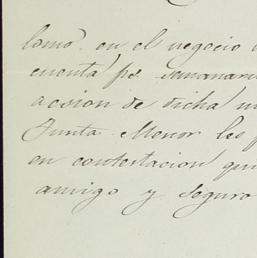 como en el negocio
cuenta pr
acsion de dicha
Junta Menor les
en contestacion
amigo y seguro